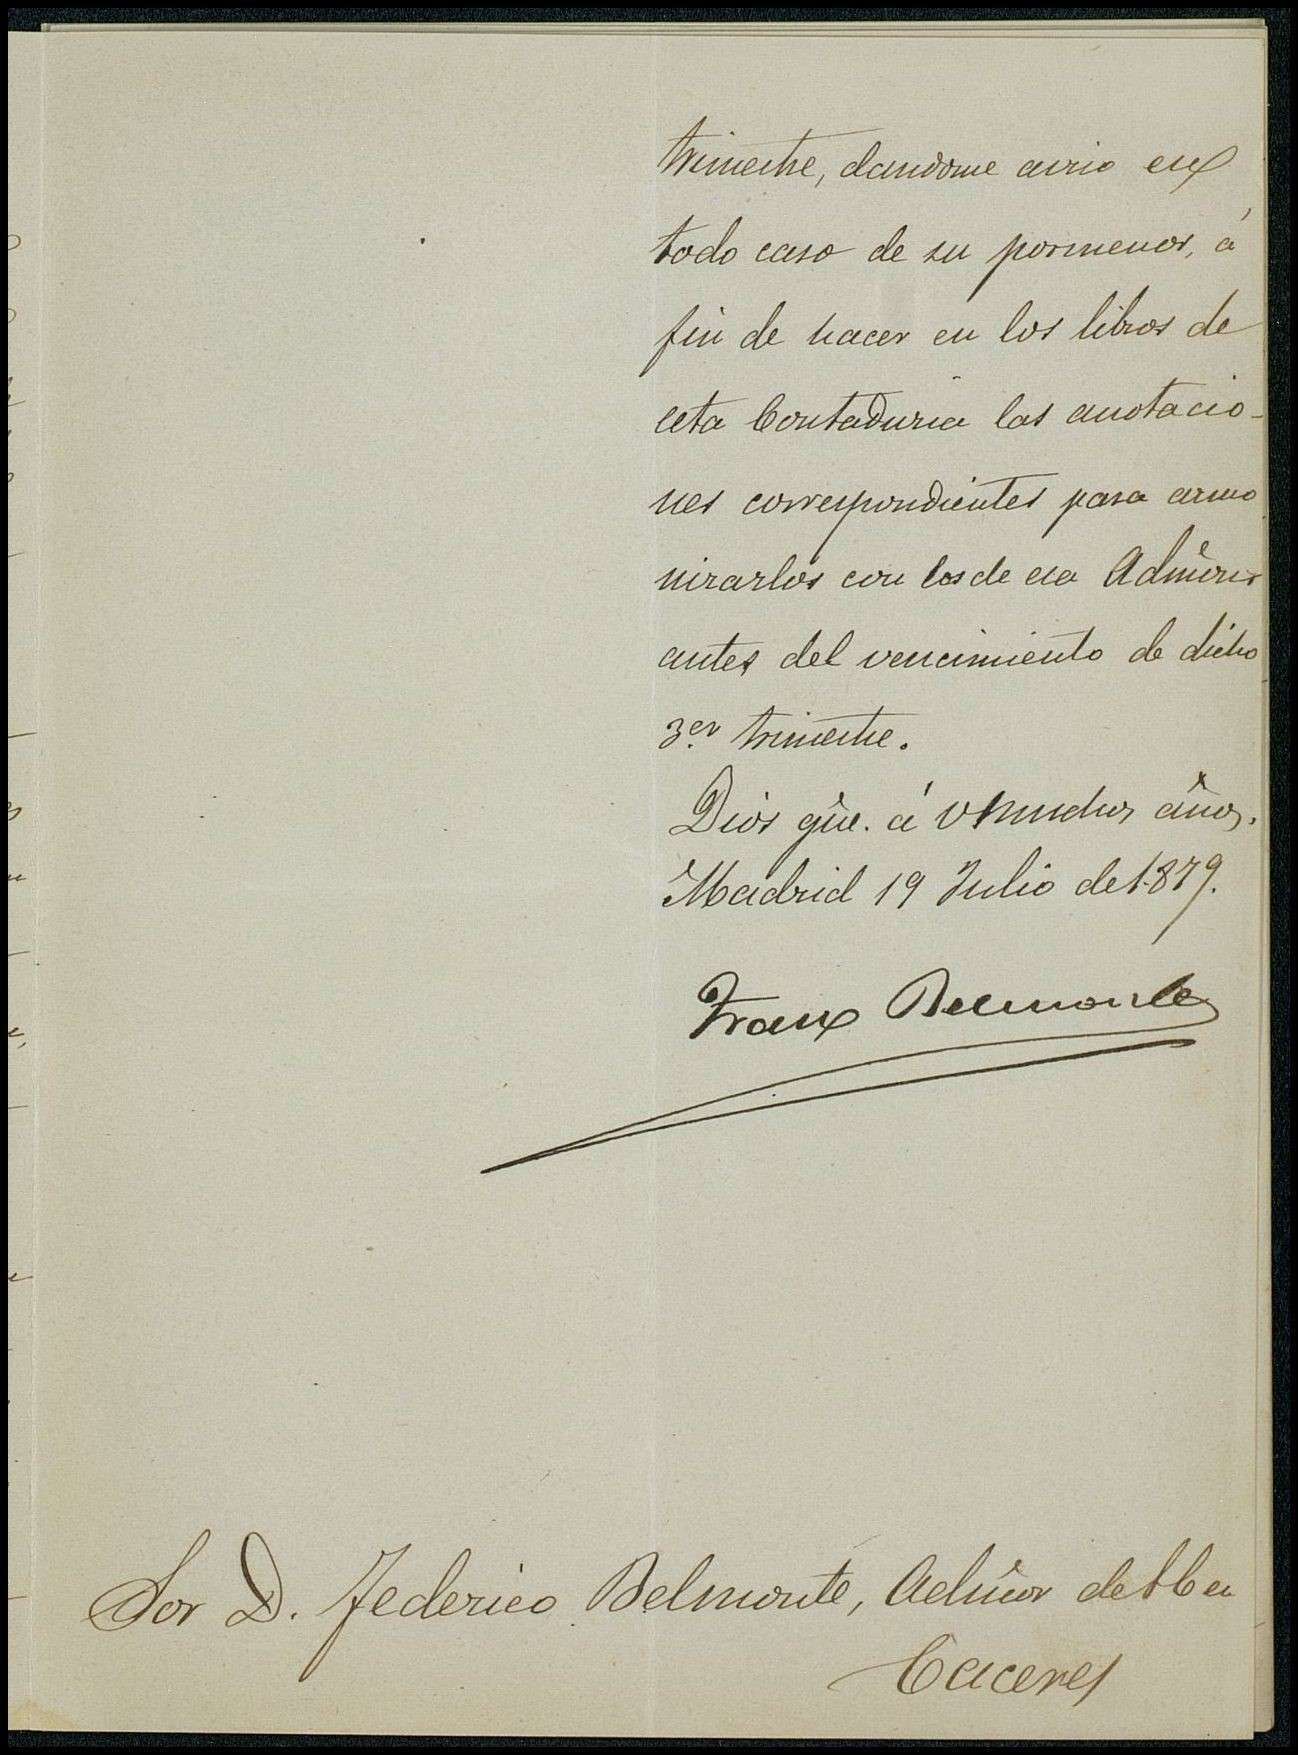 trimestre, dandome aviso en
todo caso de su pormenor, á
fin de hacer en los libros de
esta Contaduria las anotacio-
nes correspondientes para armo
nizarlos con los de esa Admôn
antes del vencimiento de dicho
3.er trimestre.
Dios gûe. á V muchos años.
Madrid 19 Julio de 1879.
Franco Belmonte
Sor D. Federico Belmonte, Admôr del
Caceres